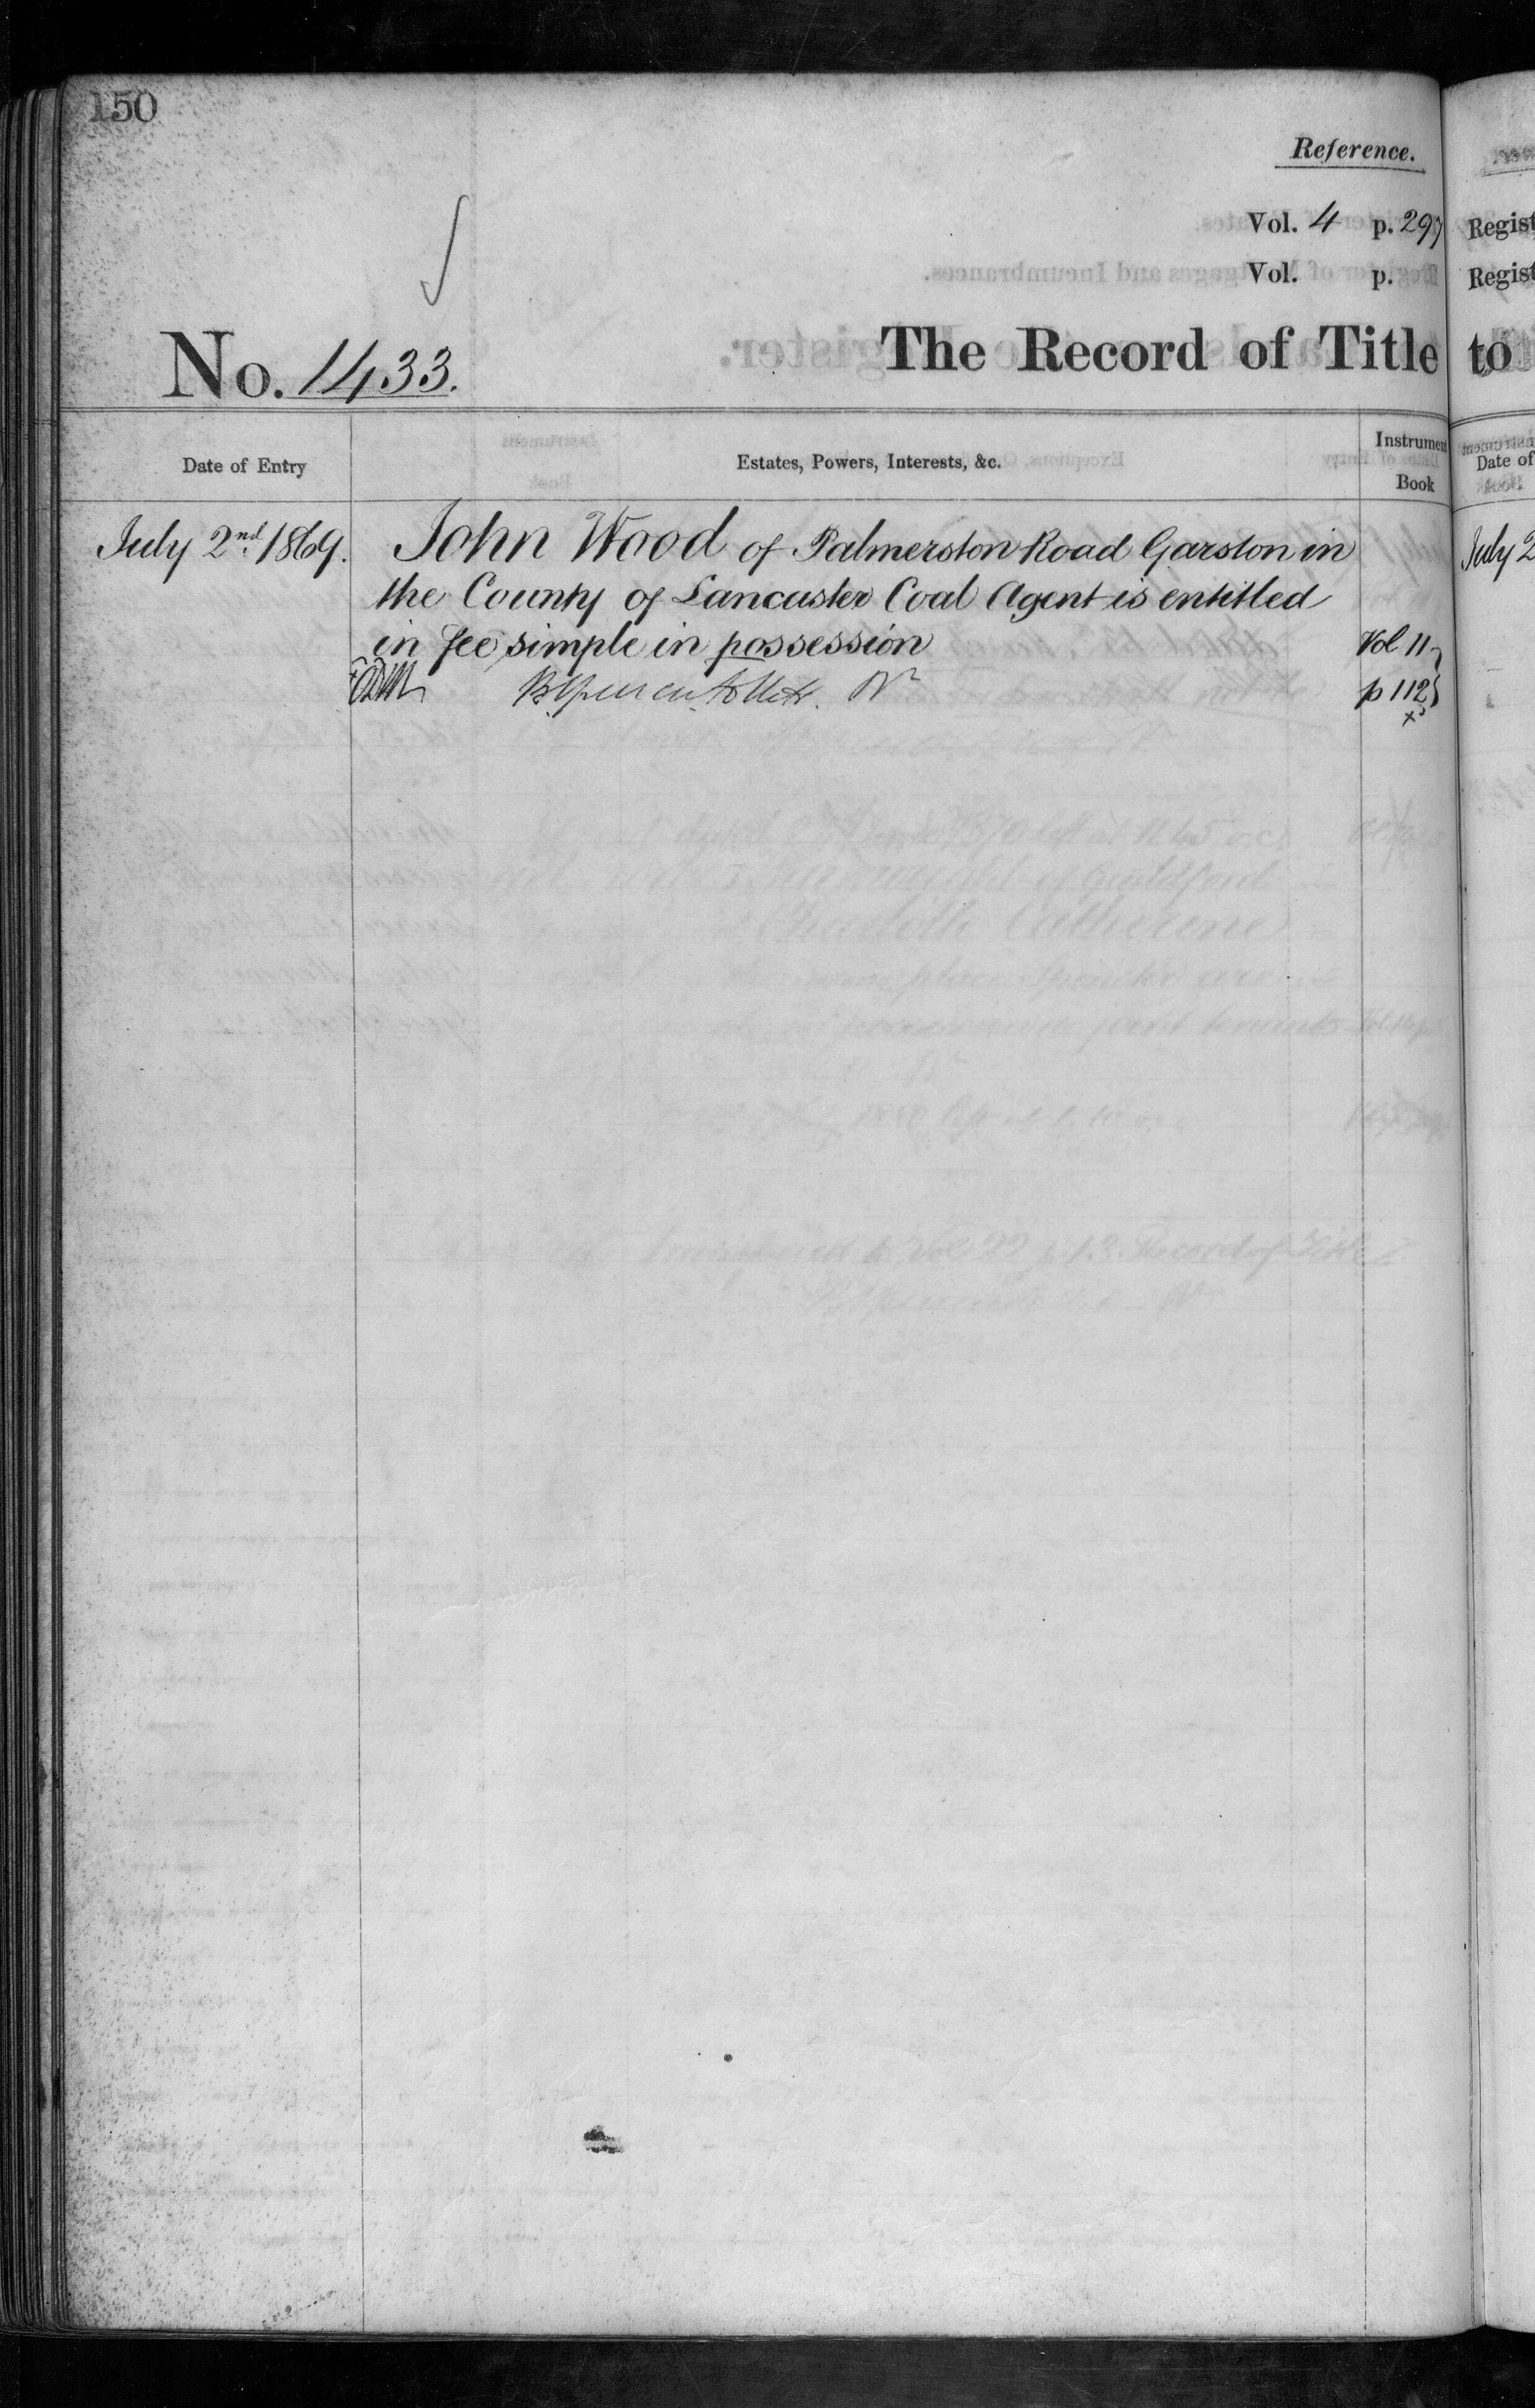 150
Reference.
Vol. 4 p. 297
Vol. p.
No. 1433.
The Record of Title to
Date of Entry
Estates, Powers, Interests, &c.
Instrument
Book
July 2nd 1869.
John Wood of Palmerston Road Garston in
the County of Lancaster Coal Agent is entitled
in fee simple in possession
Vol 11
p 112
Regist
Regist
Date of
July 2